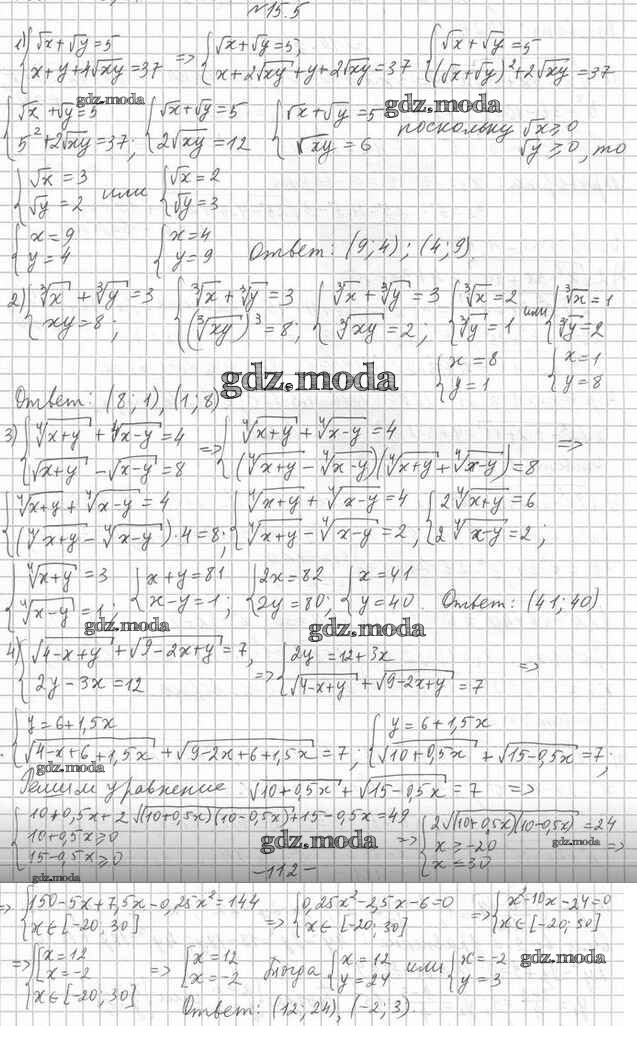 №15.5
1) {√x+√y=5 {x+y+4√xy=37 => {√x+√y=5, {x+2√xy+y+2√xy=37 {√x+√y=5 {(√x+√y)²+2√xy=37
gdz.moda
gdz.moda
{√x+√y=5 {5²+2√xy=37; {√x+√y=5 {2√xy=12 {√x+√y=5 {√xy=6 поскольку √x≥0 √y≥0, то
{√x=3 {√y=2 или {√x=2 {√y=3
{x=9 {y=4 {x=4 {y=9 Ответ: (9;4); (4;9).
2) {∛x+∛y=3 {xy=8; {∛x+∛y=3 {(∛xy)³=8; {∛x+∛y=3 {∛xy=2; {∛x=2 {∛y=1 или {∛x=1 {∛y=2
{x=8 {y=1 {x=1 {y=8
gdz.moda
Ответ: (8;1), (1;8)
3) {∜x+y+∜x-y=4 {√x+y-√x-y=8 => {∜x+y+∜x-y=4 {(∜x+y-∜x-y)(∜x+y+∜x-y)=8 =>
{∜x+y+∜x-y=4 {(∜x+y-∜x-y)·4=8; {∜x+y+∜x-y=4 {∜x+y-∜x-y=2; {2∜x+y=6 {2∜x-y=2;
{∜x+y=3 {∜x-y=1; {x+y=81 {x-y=1; {2x=82 {2y=80; {x=41 {y=40. Ответ: (41;40)
gdz.moda
gdz.moda
4) {√4-x+y+√9-2x+y=7, {2y-3x=12 => {2y=12+3x {√4-x+y+√9-2x+y=7 =>
{y=6+1,5x {√4-x+6+1,5x+√9-2x+6+1,5x=7; {y=6+1,5x {√10+0,5x+√15-0,5x=7;
gdz.moda
Решим уравнение: √10+0,5x+√15-0,5x=7 =>
{10+0,5x+2√(10+0,5x)(10-0,5x)+15-0,5x=49 {10+0,5x≥0 {15-0,5x≥0 => {2√(10+0,5x)(10-0,5x)=24 {x≥-20 {x≤30 =>
gdz.moda
gdz.moda
-112-
=> {150-5x+7,5x-0,25x²=144 {x∈[-20,30] => {0,25x²-2,5x-6=0 {x∈[-20;30] => {x²-10x-24=0 {x∈[-20;30]
=> {[x=12 [x=-2 {x∈[-20;30] => [x=12 [x=-2 Тогда {x=12 {y=24 или {x=-2 {y=3
gdz.moda
Ответ: (12;24), (-2;3).